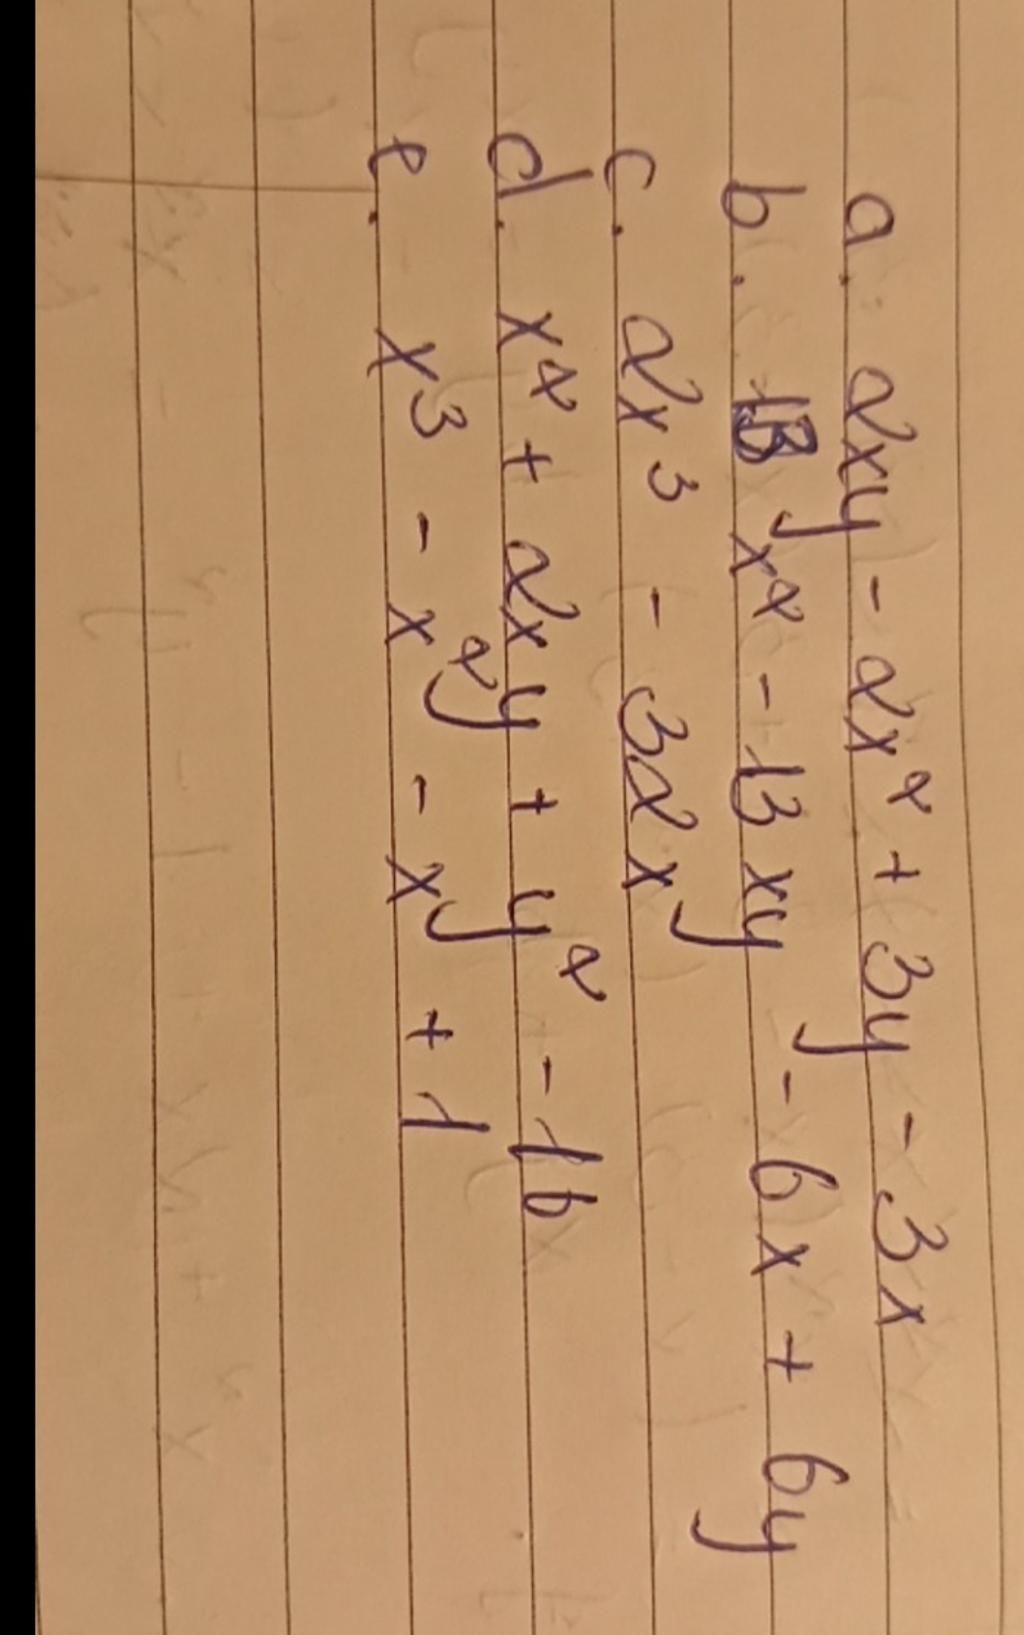 a. 2xy - 2x² + 3y - 3x
b. 13x² - 13xy - 6x + 6y
c. 2x³ - 32x
d. x² + 2xy + y² - 16
e. x³ - x²y - xy + 1